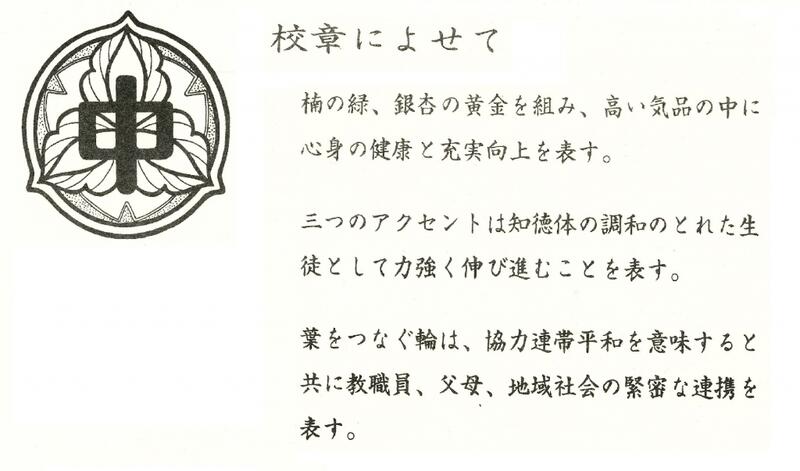 中
校章によせて
楠の緑、銀杏の黄金を組み、高い気品の中に
心身の健康と充実向上を表す。
三つのアクセントは知徳体の調和のとれた生
徒として力強く伸び進むことを表す。
葉をつなぐ輪は、協力連帯平和を意味すると
共に教職員、父母、地域社会の緊密な連携を
表す。